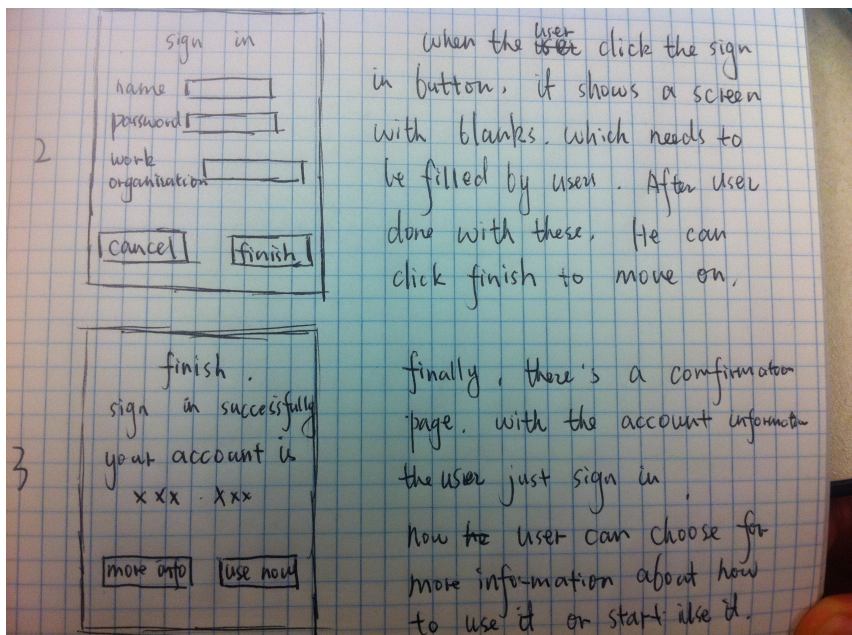 2
sign in
name
password
work
organization
cancel finish
when the user click the sign
in button, it shows a screen
with blanks. which needs to
be filled by user. After user
done with these. He can
click finish to move on.
3
finish.
sign in successfully
your account is
xxx . xxx
more info use now
finally, there's a comfirmation
page. with the account information
the user just sign in.
now user can choose for
more information about how
to use it or start use it.